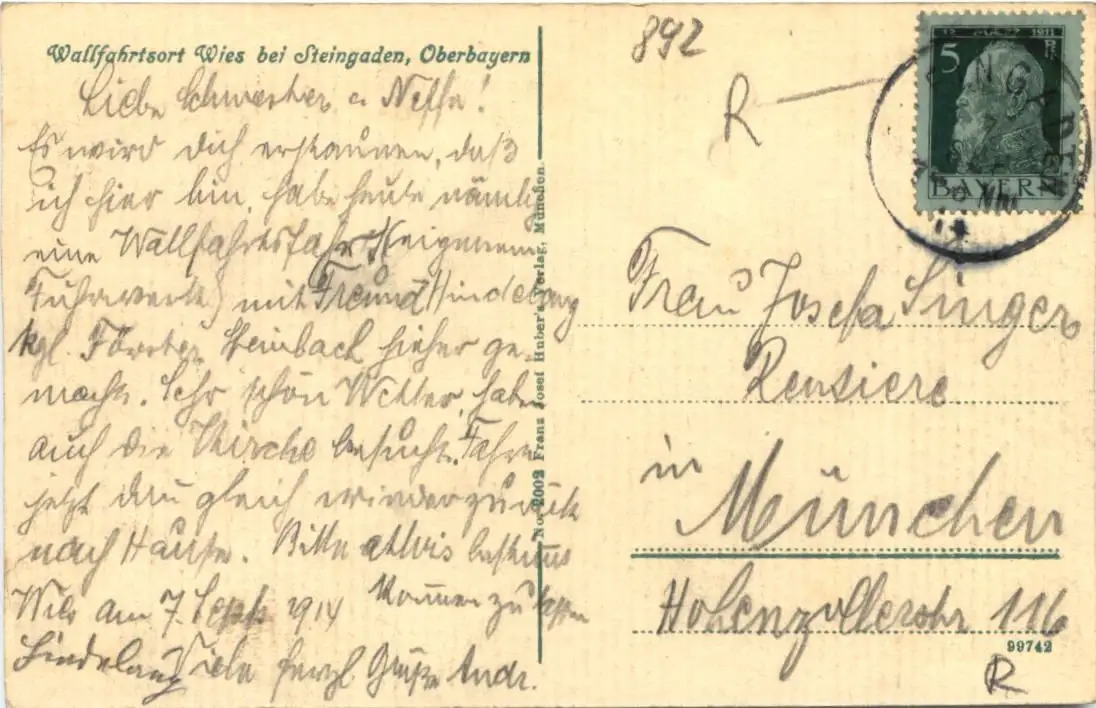 Wallfahrtsort Wies bei Steingaden, Oberbayern
Liebe Schwester u Neffe!
Es wird dich erstaunen, daß
ich hier bin, habe heute nämlich
eine Wallfahrt
Fuhrwerk) mit Freund Hindelang
kgl. Förster Steinbach hieher ge-
macht. Sehr schön Wetter, haben
auch die Kirche besucht. Fahren
jetzt dan gleich wieder zurück
nach Hause. Bitte Alwis bestimmt
Kommen zu lassen
Wies am 7. Sept 1914
Hindelang Viele herzl Grüße Andr.
No. 2002 Franz Josef Huber's Verlag, München.
892
R
12. MÄRZ 1911
5 Pf
BAYERN
STEINGADEN
Frau Josefa Singer
Rentiere
in
München
Hohenzollerstr 116
99742
R